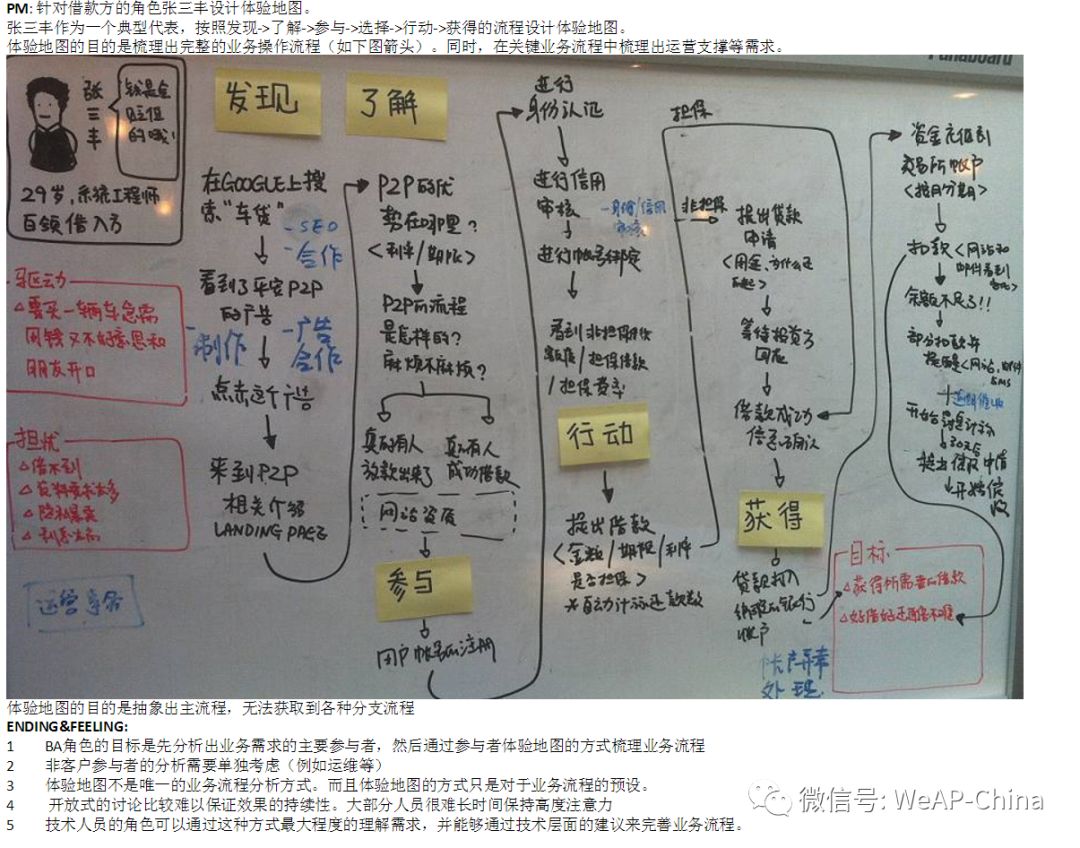 PM: 针对借款方的角色张三丰设计体验地图。
张三丰作为一个典型代表，按照发现->了解->参与->选择->行动->获得的流程设计体验地图。
体验地图的目的是梳理出完整的业务操作流程（如下图箭头）。同时，在关键业务流程中梳理出运营支撑等需求。
张三丰
我是全
的哦!
29岁,系统工程师
白领借入方
驱动
△要买一辆车急需
用钱又不好意思和
朋友开口
担忧
△借不到
△资料要求太多
△隐私暴露
△利息太高
运营事务
发现
在GOOGLE上搜
索"车贷"
-SEO
-合作
看到了平安P2P
的广告
-制作
-广告
合作
点击这个广告
来到P2P
相关介绍
LANDING PAGE
了解
P2P的优
势在哪里?
<利率/期限>
P2P的流程
是怎样的?
麻烦不麻烦?
真的有人
放款出来了
真的有人
成功借款
网站资质
参与
用户帐号的注册
进行
身份认证
进行信用
审核
-身份/信用
审核
进行帐号绑定
看到非担保借款
额度/担保借款
/担保费率
行动
提出借款
<金额/期限/利率
是否担保>
*自动计算还款数
担保
非担保
提出贷款
申请
等待投资方
回应
借款成功
信息确认
获得
贷款打入
绑定的银行
账户
帐户异常
处理
资金充值到
交易所帐户
<按月分期>
扣款<网站和
邮件看到
余额不足了!!
部分扣款并
提醒<网站,邮件
SMS
逾期催收
开始罚息计算
30天后
开始偿
目标
△获得所需要的借款
△好借好还再借不难
Panaboard
体验地图的目的是抽象出主流程，无法获取到各种分支流程
ENDING&FEELING:
1 BA角色的目标是先分析出业务需求的主要参与者，然后通过参与者体验地图的方式梳理业务流程
2 非客户参与者的分析需要单独考虑（例如运维等）
3 体验地图不是唯一的业务流程分析方式。而且体验地图的方式只是对于业务流程的预设。
4 开放式的讨论比较难以保证效果的持续性。大部分人员很难长时间保持高度注意力
5 技术人员的角色可以通过这种方式最大程度的理解需求，并能够通过技术层面的建议来完善业务流程。
微信号: WeAP-China